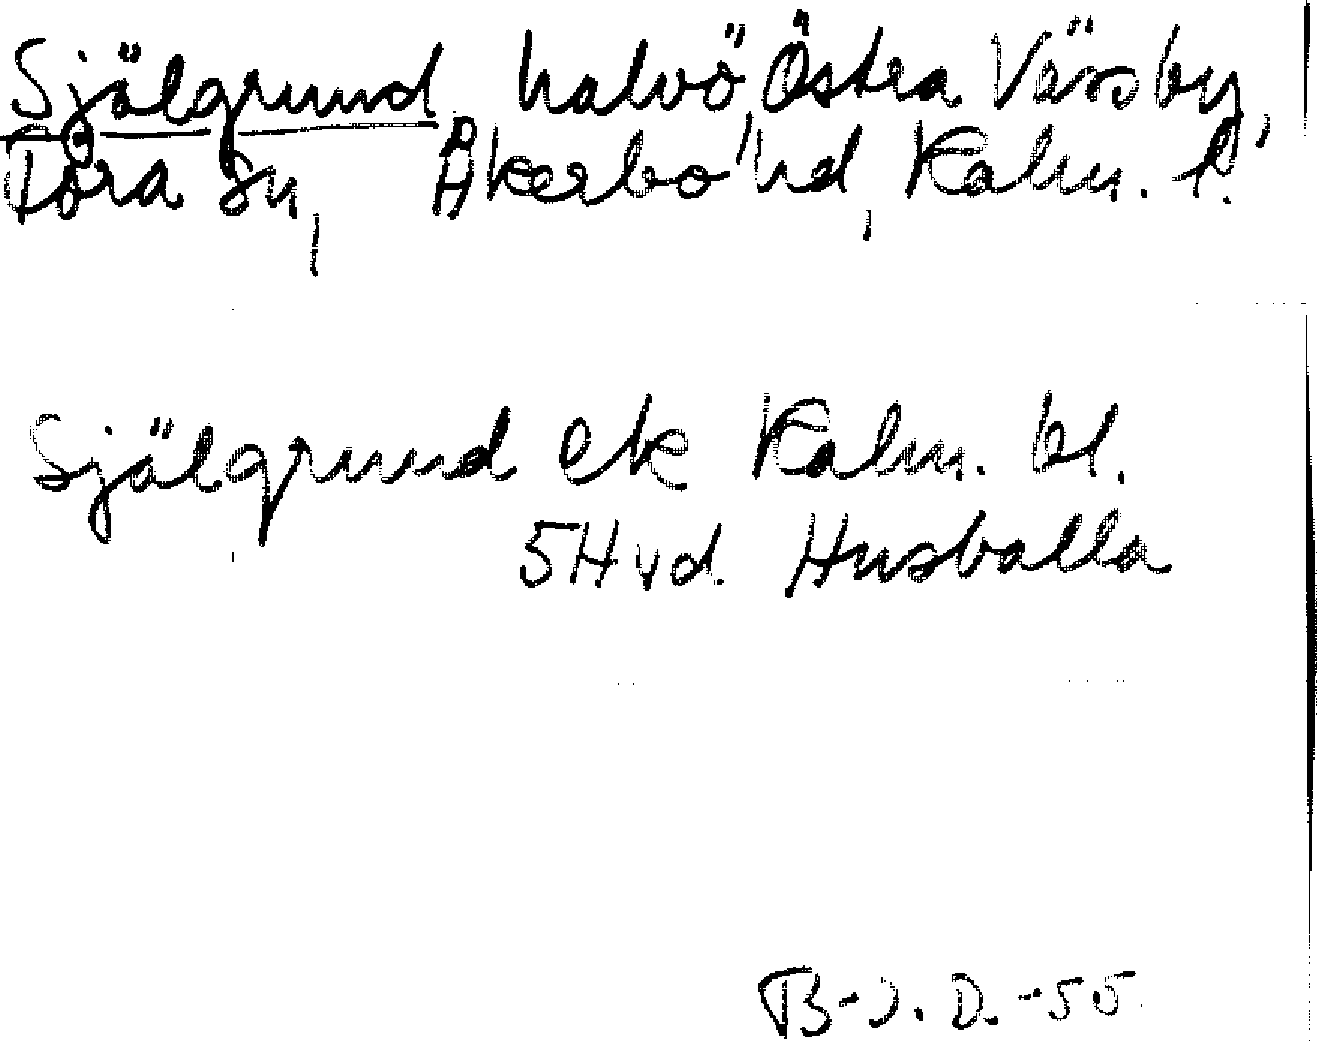 Själgrund, halvö, Östra Vässby,
Föra sn, Åkerbo hd, Kalm. l.
Själgrund ek Kalm. bl.
5H vd. Husvalla
B-J. D. -55